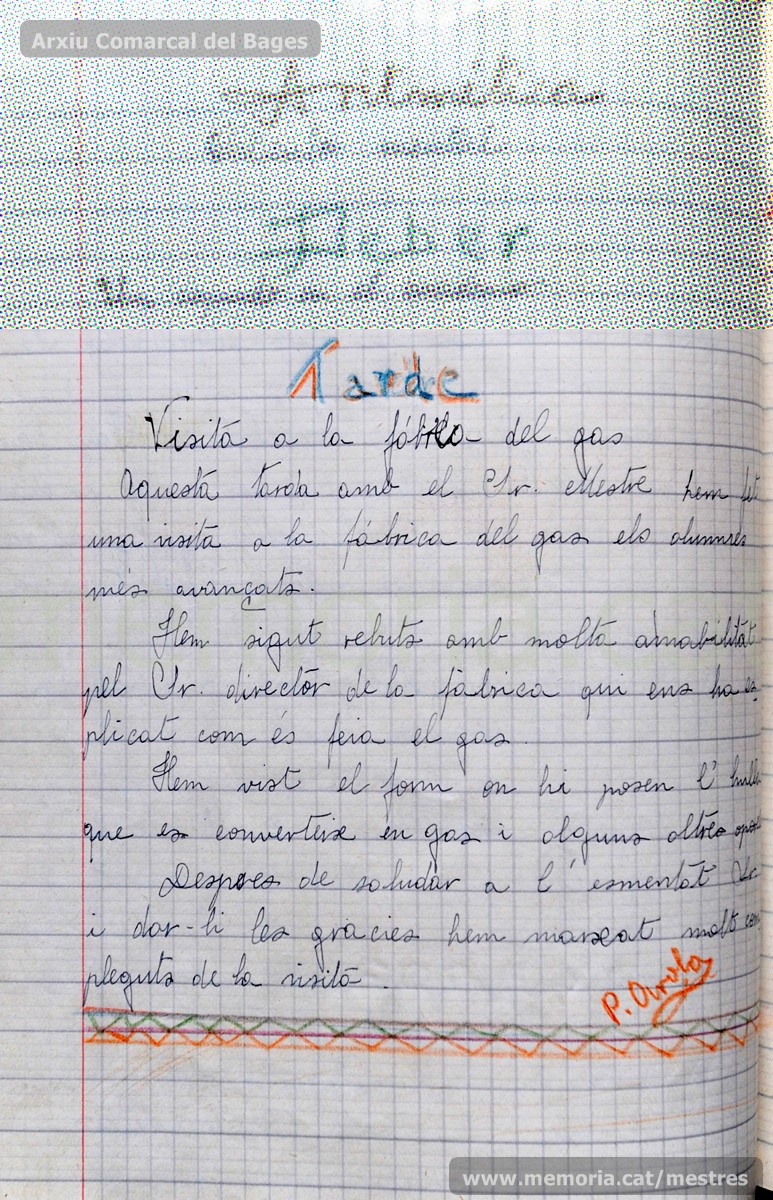 Arxiu Comarcal del Bages
Aritmética
Deber
Tarde
Visita a la fábrica del gas
Aquesta tarda amb el Sr. Mestre hem fet
una visita a la fábrica del gas els alumnes
més avançats.
Hem sigut rebuts amb molta amabilitat
pel Sr. director de la fàbrica qui ens ha es
plicat com és feia el gas.
Hem vist el forn on hi posen l'hulla
que es converteix en gas i alguns altres
Despres de saludar a l'esmentat Sr.
i dar-li les gràcies hem marxat molt com
pleguts de la visita.
P. Arola
www.memoria.cat/mestres